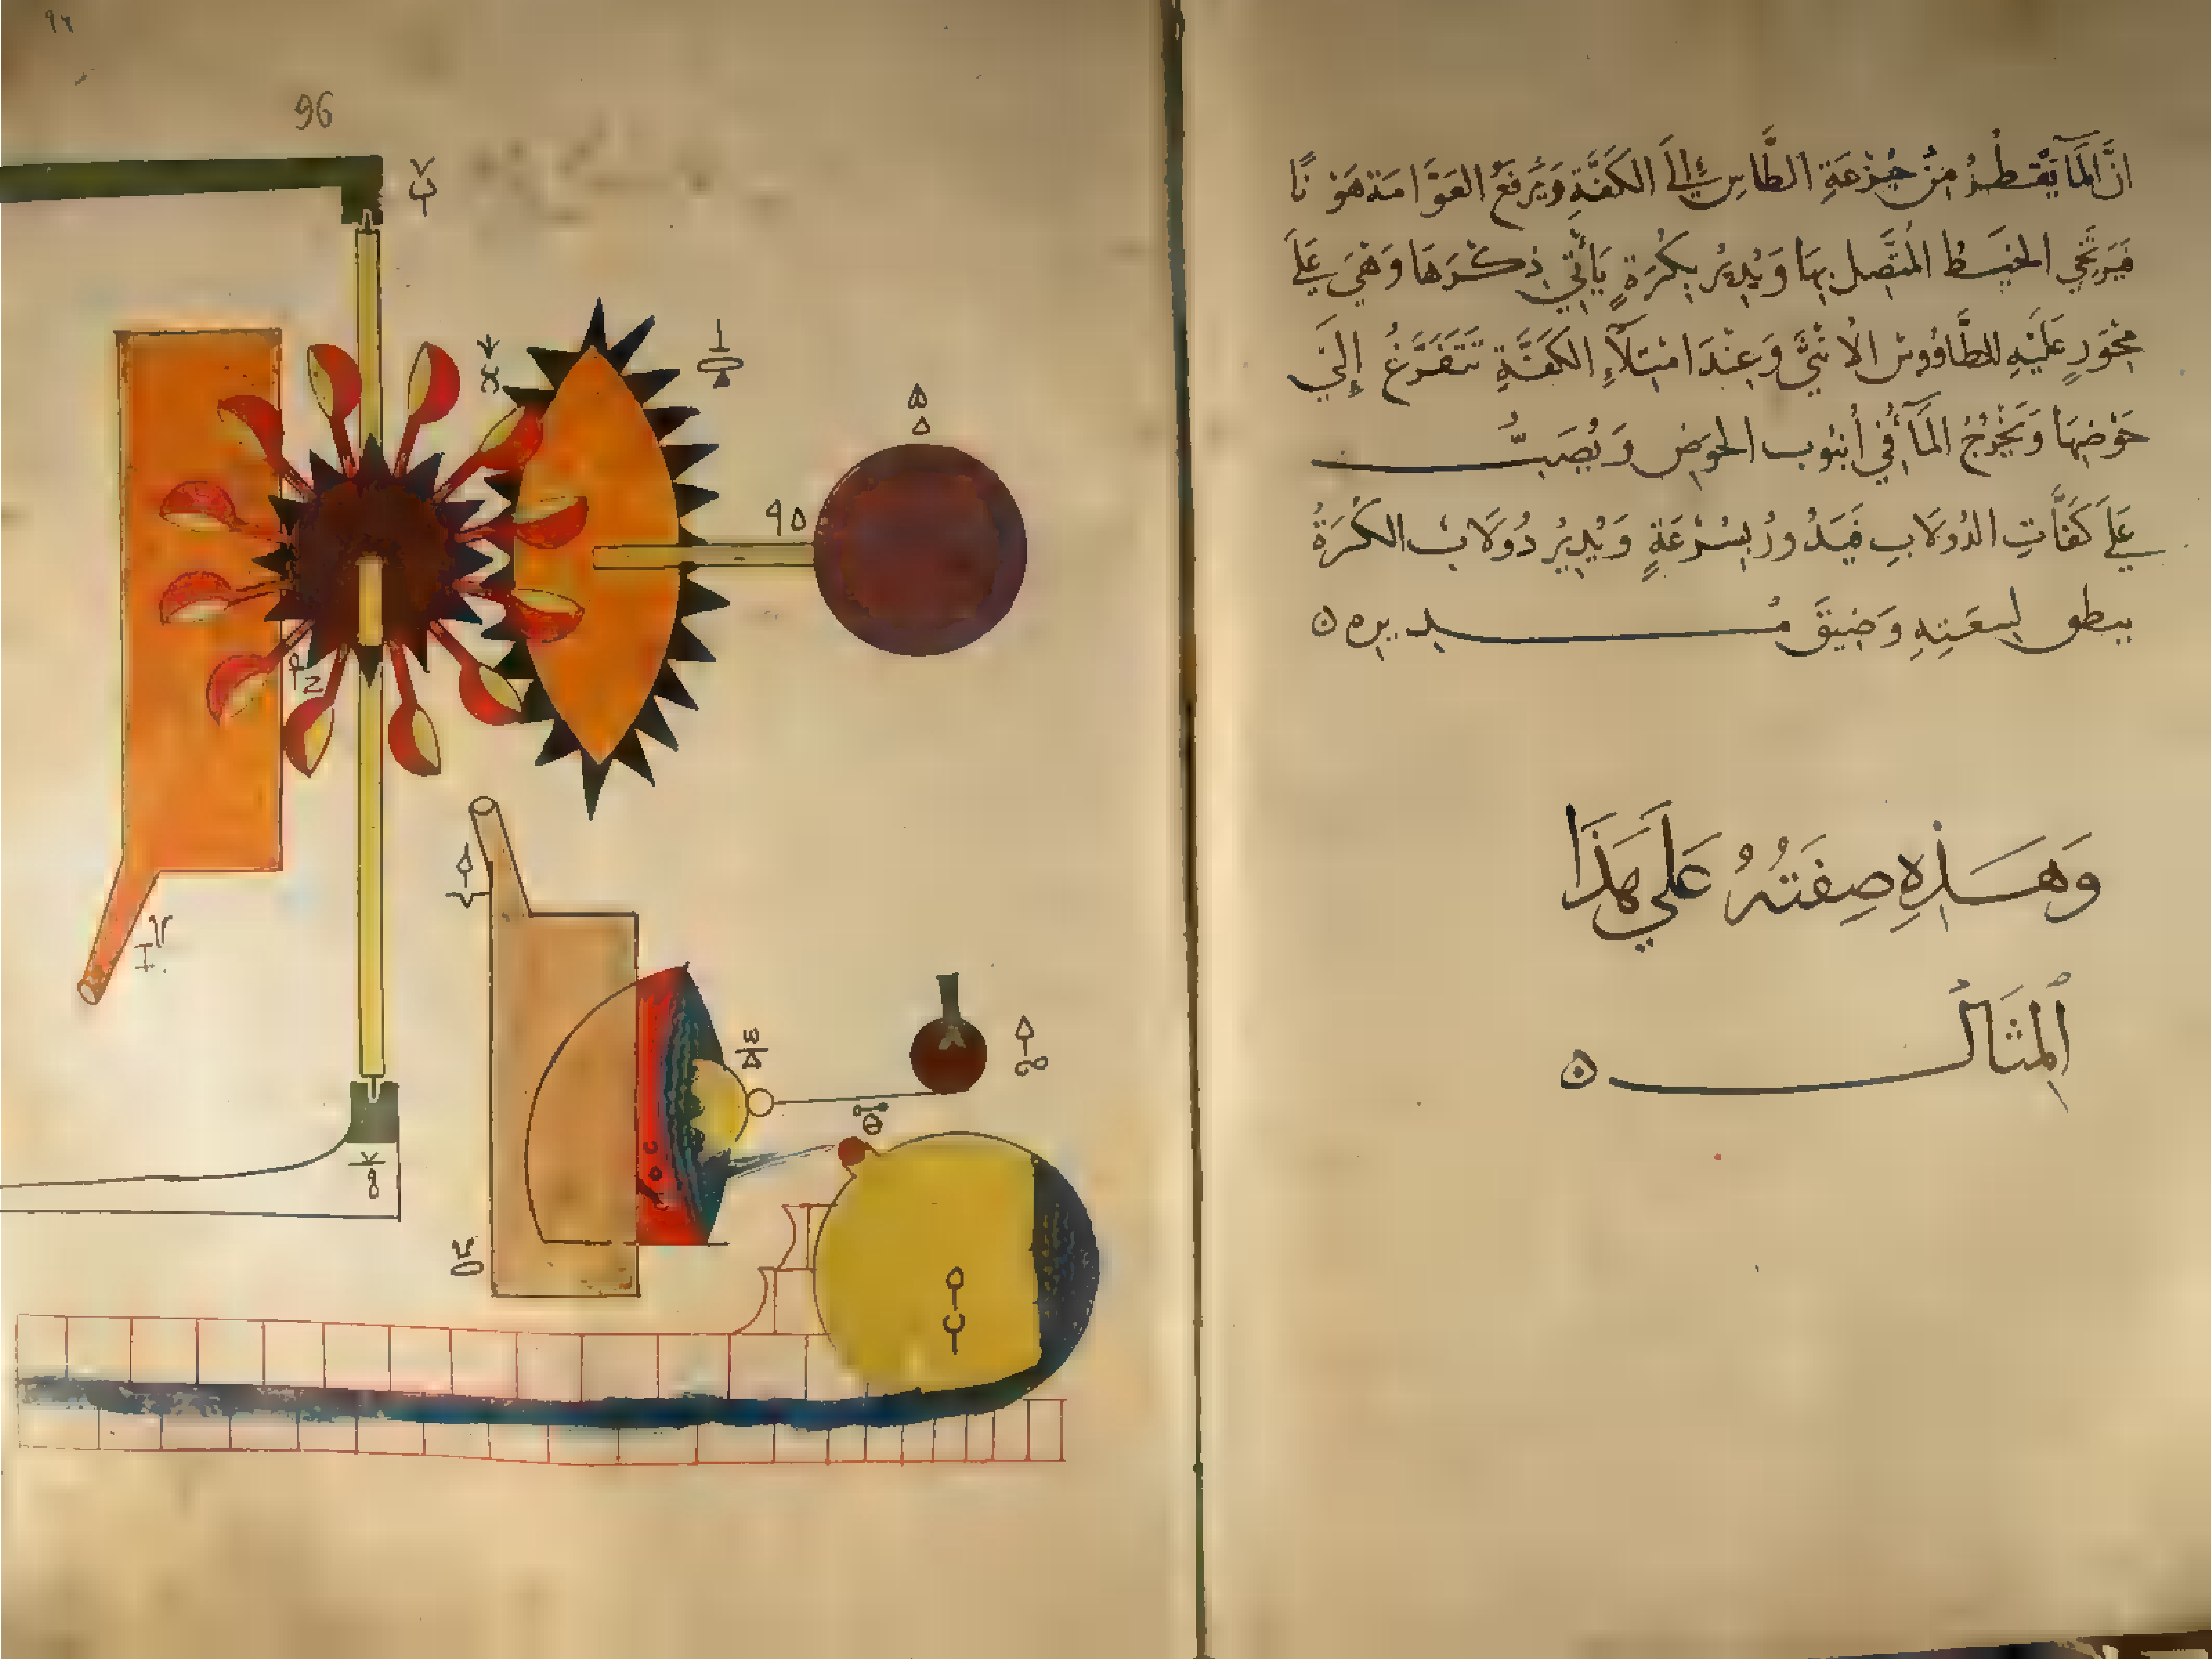 انَّ المَآءَ يَقْطُرُ مِنْ جُزْعَةِ الطَّاسِ إلَى الكَفَّةِ وَيَرفَعُ العَوَّامَةَ هَوْنًا
فَيَرتَخِي الخَيْطُ المُتَّصِل بِهَا وَيُدِيرُ بَكْرَةٍ يَأتِي ذِكْرَهَا وَهْيَ عَلَى
مِحْوَرٍ عَلَيْهِ الطَّاوُوس الاُنْثَى وَعِنْدَ امْتِلآءِ الكَفَّةِ تَتَفَرَّغُ إلَى
حَوْضِهَا وَيَخْرُجُ المَآءُ فِي أُنبُوب الحَوضِ وَيُصَبُّ
عَلَى كَفَّاتِ الدُولَابِ فَيَدُورُ بِسُرْعَةٍ وَيُدِيرُ دُولَابُ الكَرَةُ
ببطو لِسَعَتِهِ وَضِيقَ مُديره ه
وَهَذِهِ صِفَتُهُ عَلَي هَذَا
المِثَالُ ه
٩٦
96